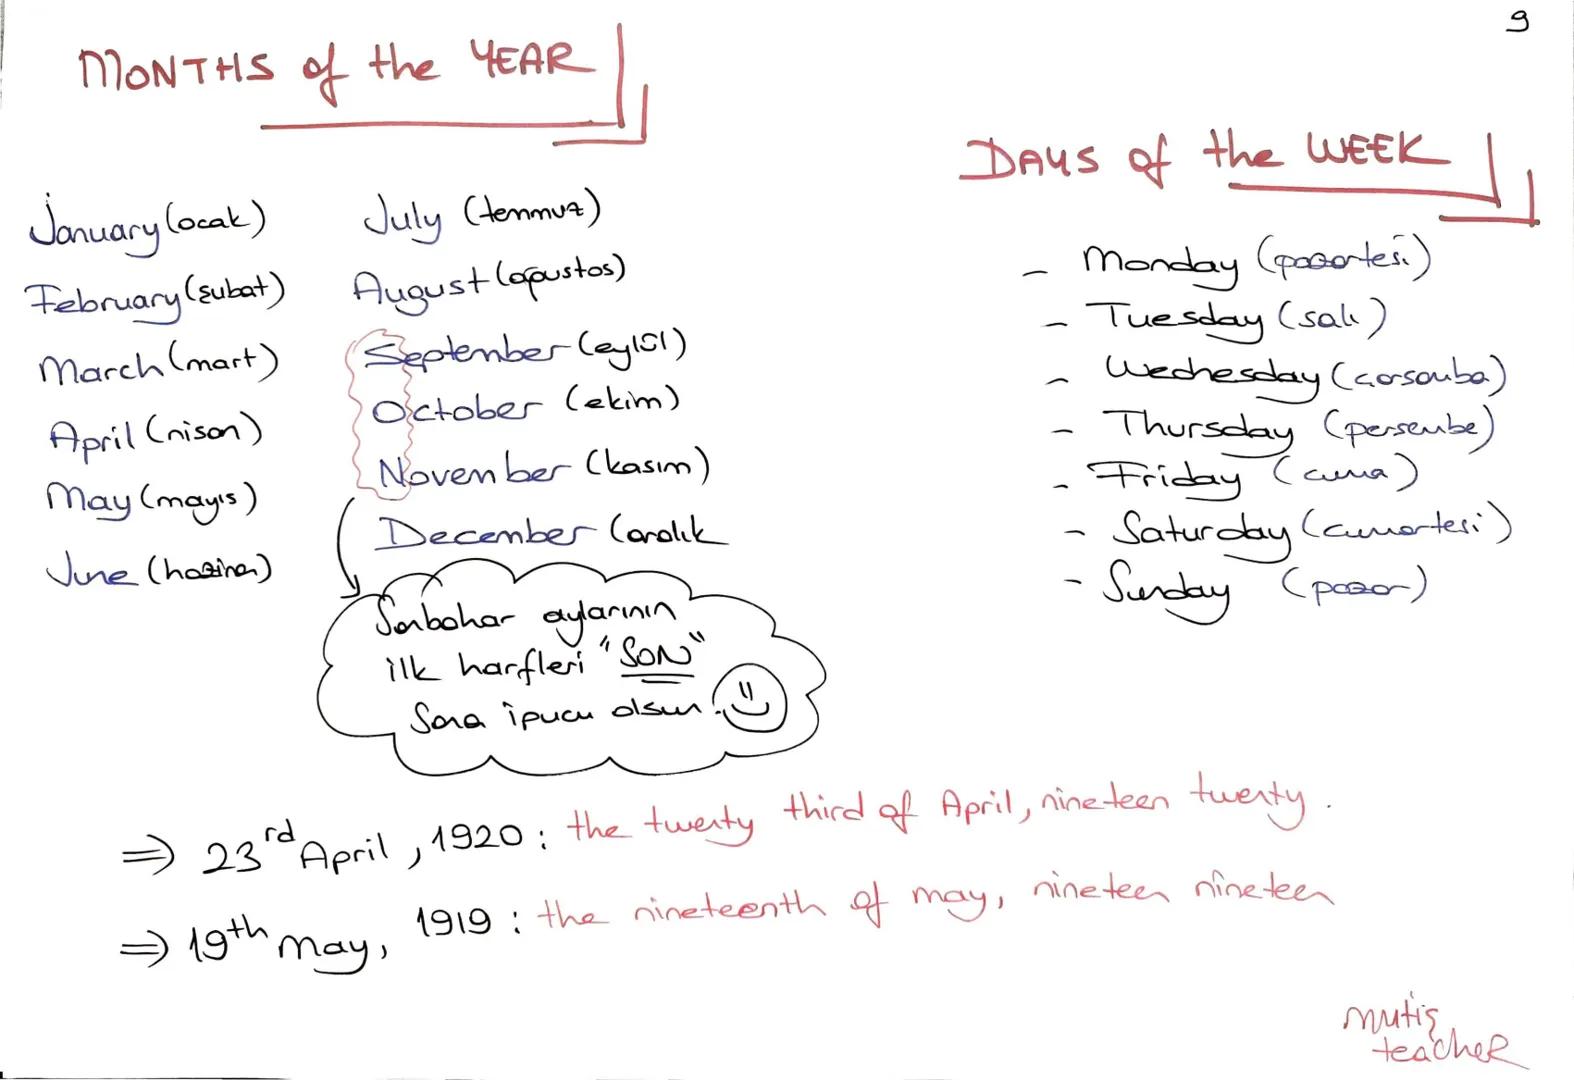 9
MONTHS of the YEAR
January (ocak)
February (şubat)
March (mart)
April (nisan)
May (mayıs)
June (haziran)
July (temmuz)
August (ağustos)
September (eylül)
October (ekim)
November (kasım)
December (aralık
Sonbahar aylarının
ilk harfleri "SON"
Sana ipucu olsun.
DAYS of the WEEK
- Monday (pazartesi)
- Tuesday (salı)
- Wednesday (çarşamba)
- Thursday (perşembe)
- Friday (cuma)
- Saturday (cumartesi)
- Sunday (pazar)
⇒ 23rd April, 1920: the twenty third of April, nineteen twenty.
⇒ 19th May, 1919: the nineteenth of may, nineteen nineteen
mutiş
teacheR